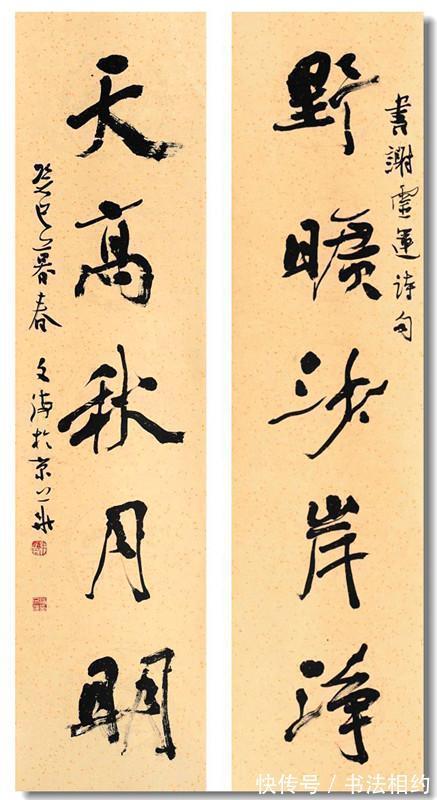 書謝靈運诗句
野曠沙岸淨
天高秋月明
癸巳暮春
文海於京華
快传号 / 书法相约